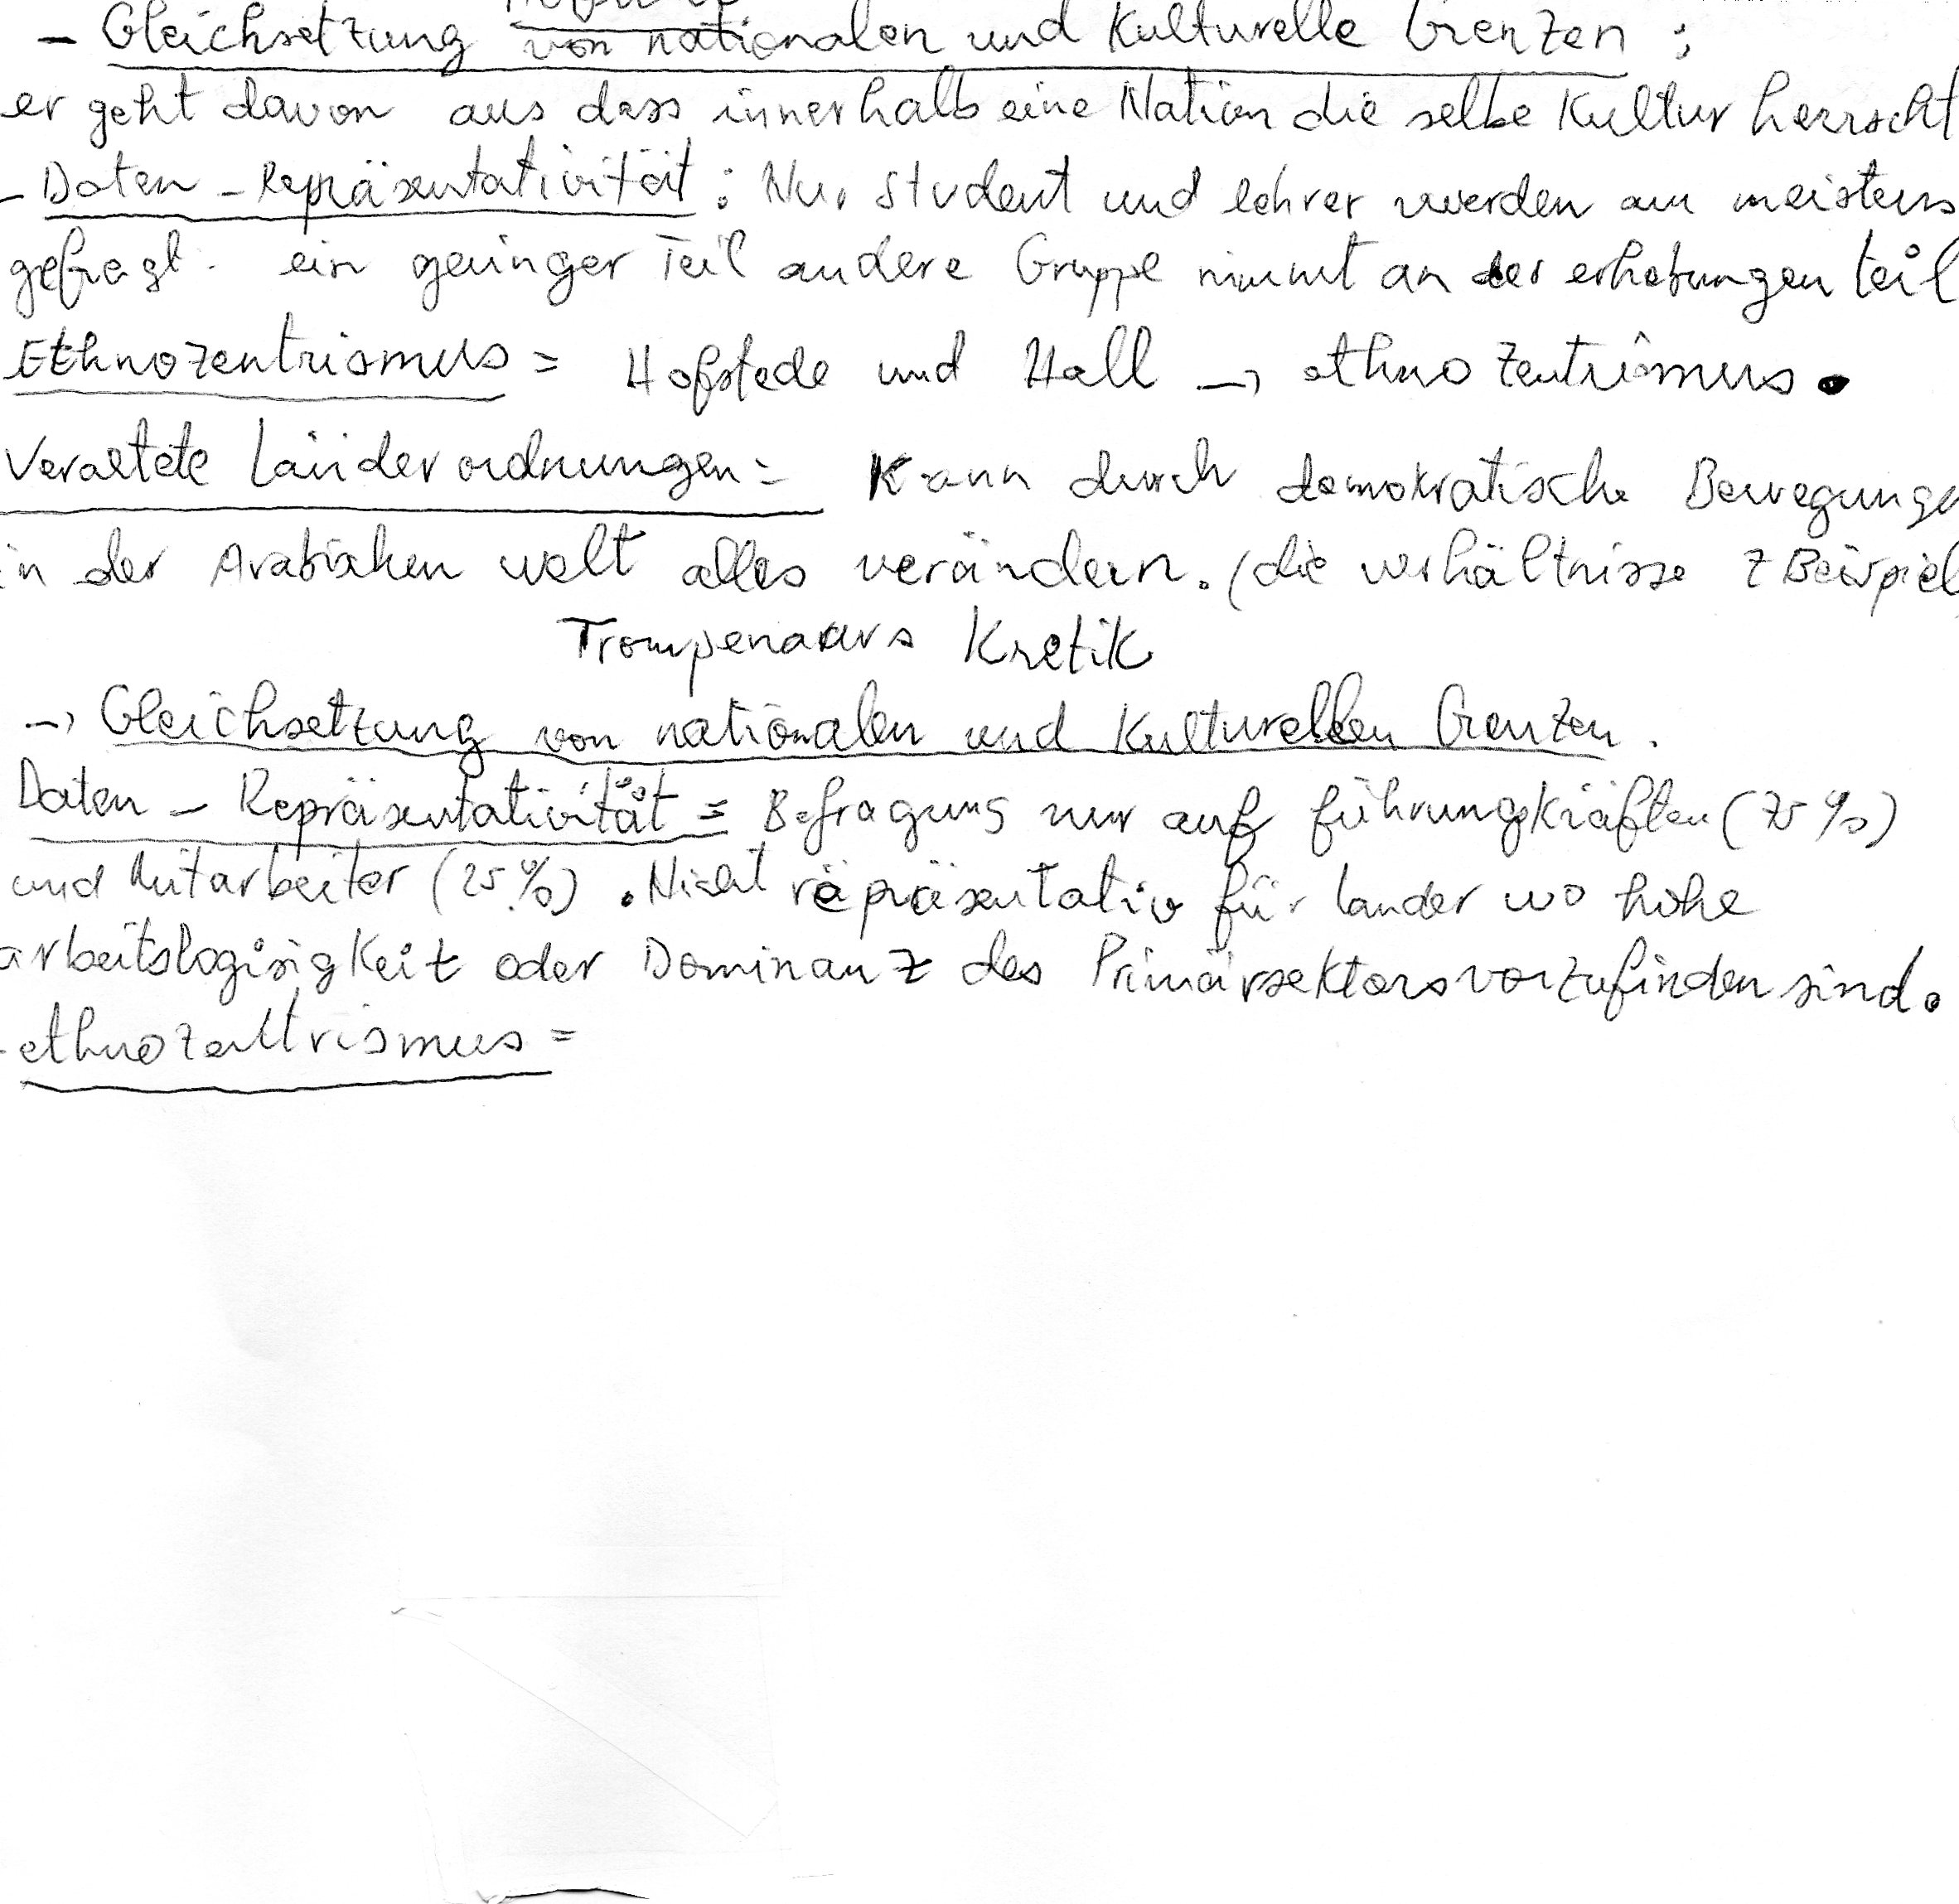 - Gleichsetzung von nationalen und kulturelle Grenzen :
er geht davon aus dass innerhalb eine Nation die selbe Kultur herrscht
- Daten - Repräsentativität : Nur Student und lehrer werden am meistens
gefragt. ein geringer Teil andere Gruppe nimmt an der erhebungen teil
Ethnozentrismus = Hofstede und Hall → ethnozentrismus.
Veraltete Länderordnungen = Kann durch demokratische Bewegunge
in der Arabischen welt alles verändern. (die verhältnisse z Beispiel
Trompenaars Kretik
→ Gleichsetzung von nationalen und Kulturellen Grenzen.
Daten - Repräsentativität = Befragung nur auf führungskräften (75 %)
und Mitarbeiter (25 %). Nicht räpräsentativ für lander wo hohe
arbeitslogisigkeit oder Dominanz des Primärsektors vorzufinden sind.
- ethnozentrismus =